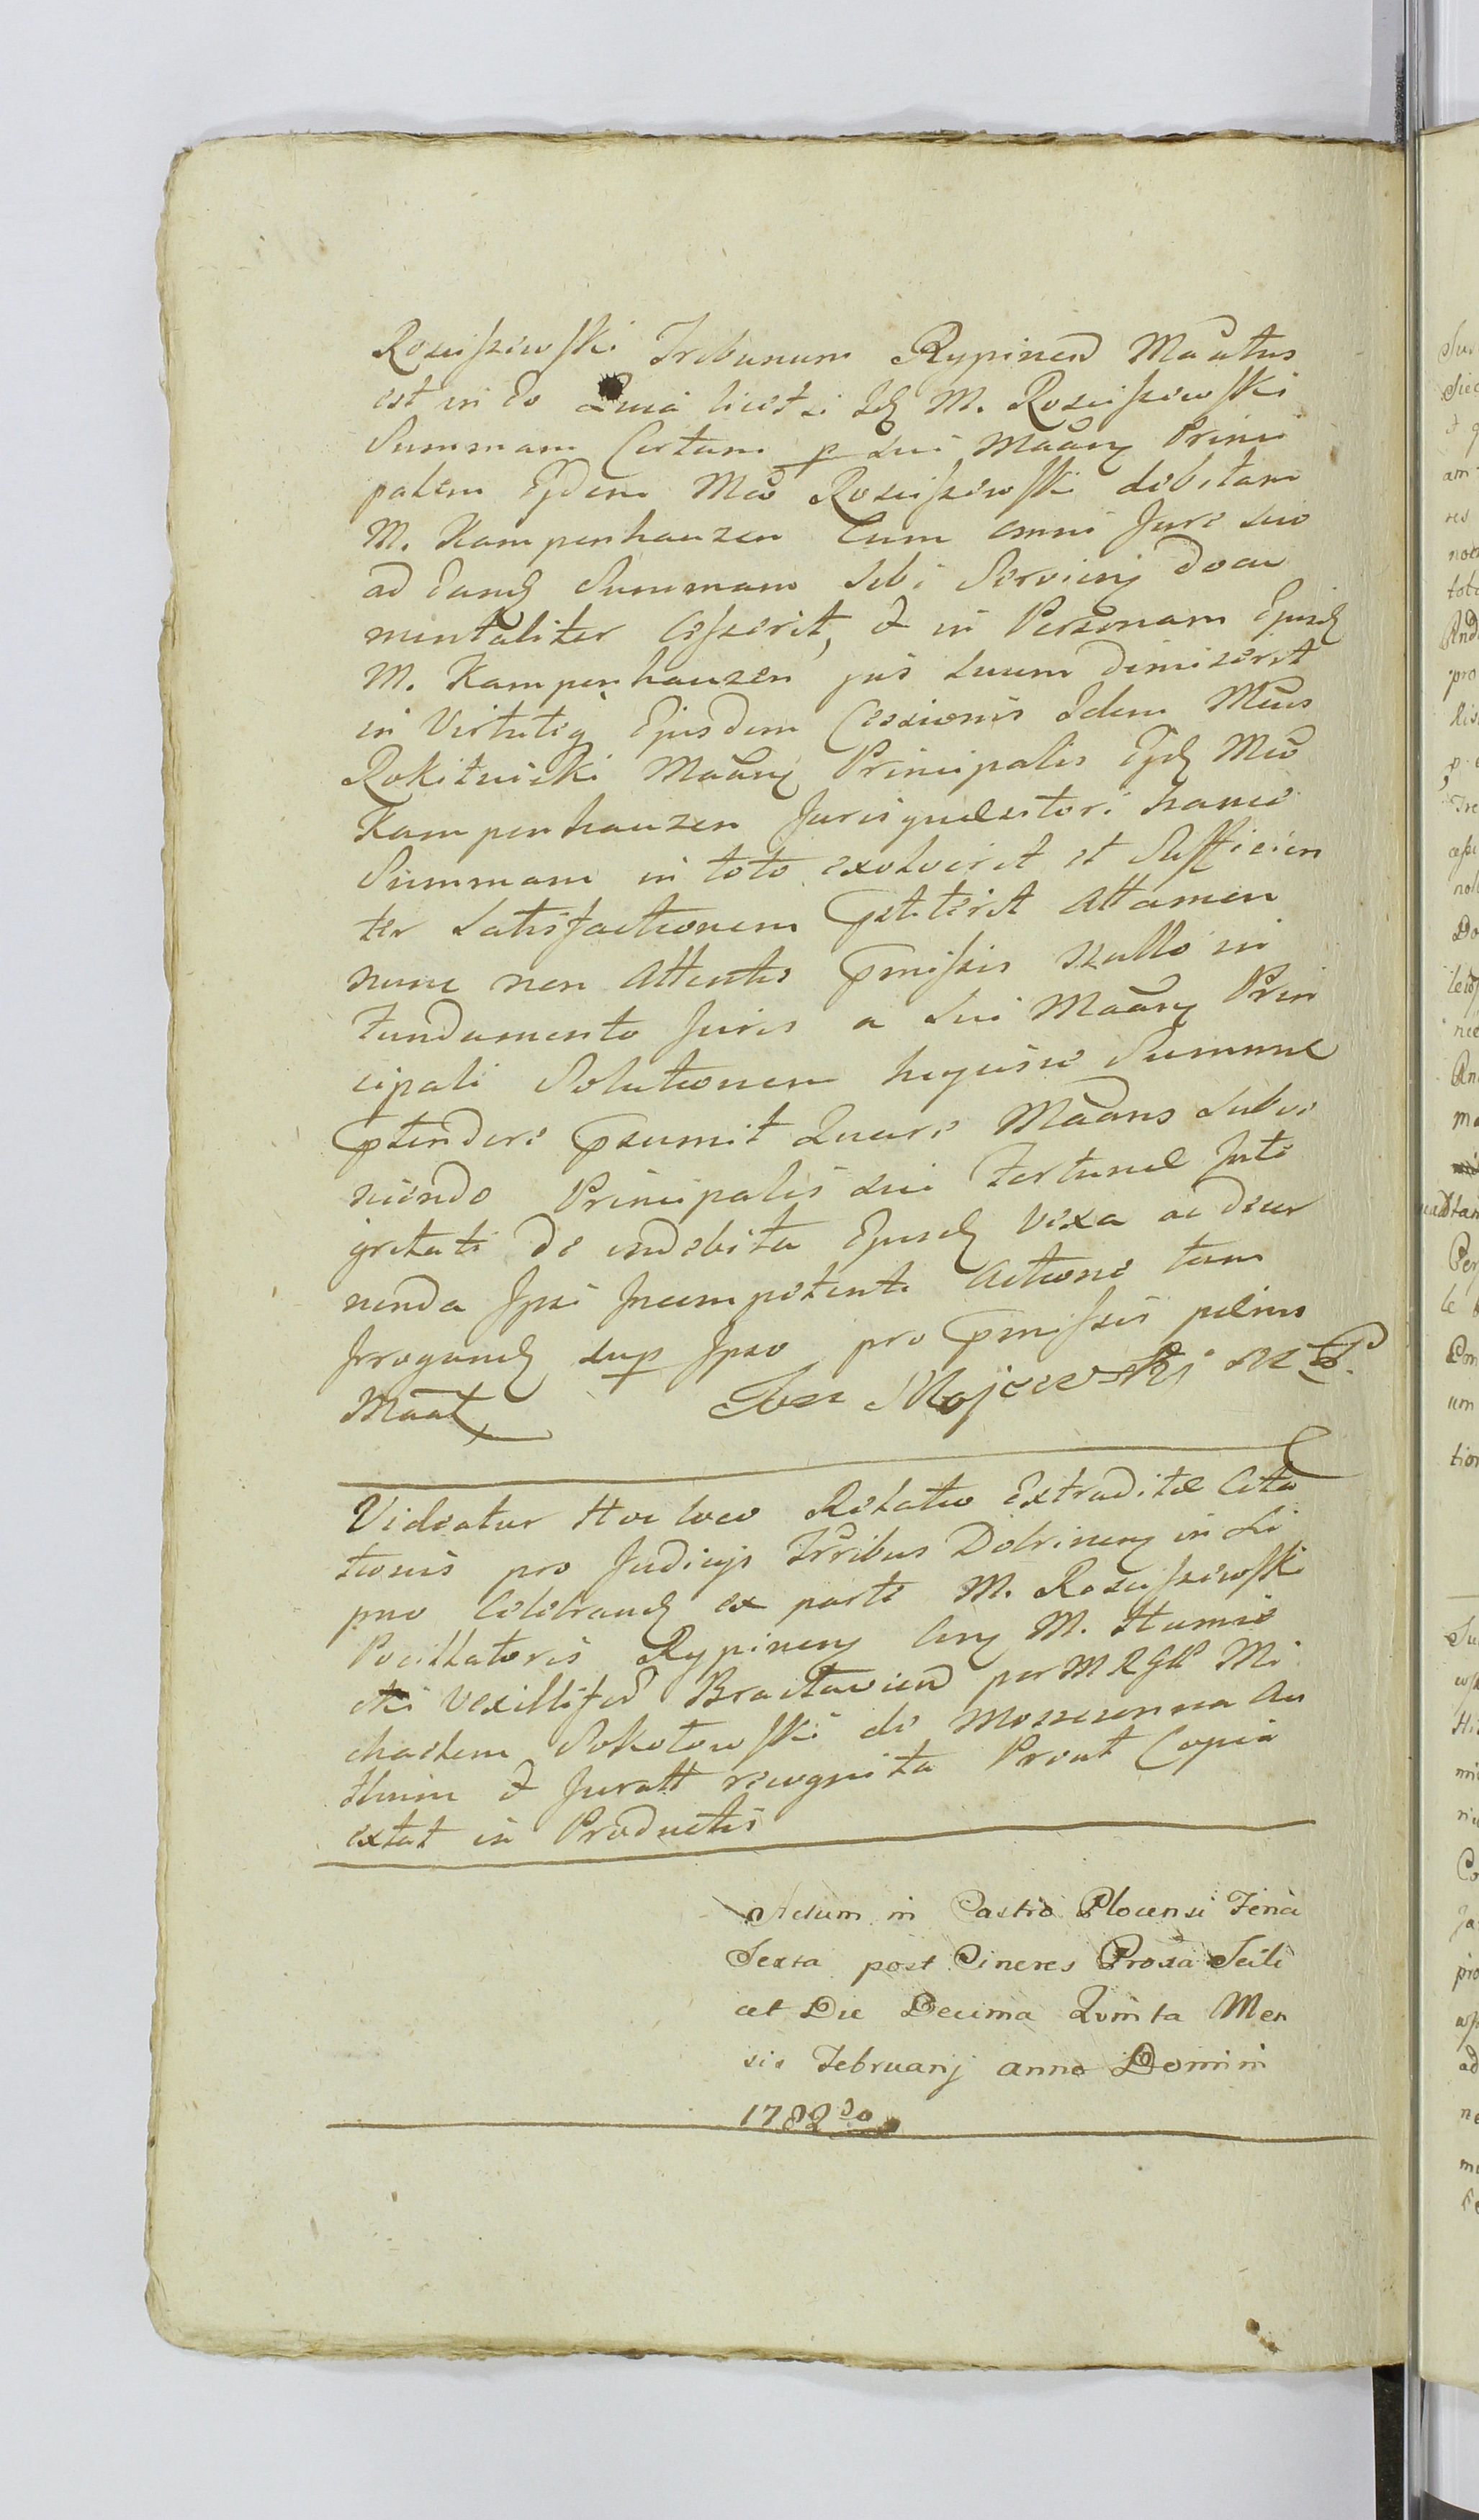 Rosciszewski Tribunum Rypinen Maatus
est in Eo Quia licet si Id M. Rosciszewski
Summam Certam p Sui Maany Princi
palem Ejdem Mco Rosciszewski debitam
M. Kampenhauzen Cum omni Jure suo
ad Eand Summam sibi Servieny docu
mentaliter Cesserit, & in Personam Ejusd
M. Kampenhauzen jus suum dimiserit
in Virtuteq Ejusdem Cessionis Idem Mcus
Rokitnicki Maany Principalis Ejd Mco
Kampenhauzen Jurisquaesitori hance
Summam in toto exolverit et Sufficien
ter Satisfactionem pstiterit Attamen
nunc non Attentis pmissis Nullo in
Fundamento Juris a Sui Maany Prin
cipali Solutionem hujusce Summae
ptendere psumit Quare Maans Subve
niendo Principalis sui Fortunae Inte
gritati de indebita Ejusd Vexa ac decer
nenda Ipsi Incompetenti Actione tum
Irrogand sup Ipso pro pmissis paenis
Maat
Jan Mojcewski M P.
Videatur Hoc loco Relatio Extraditae Cita
tionis pro Judicijs Trribus Dobrineny in Li
pno Celebrand ex parte M. Rosciszewski
Pocillatoris Rypineny Cny M. Humie
cki Vexilliferi Braclavien per M R G R Mi
chaelem Sokolowski de Moszczonna Au
thmm & Juratt recognita Prout Copia
extat in Productis
Actum in Castro Plocensi Feria
Sexta post Cineres Proxa Scili
cet Die Decima Quinta Men
sis Februarij anno Domini
1782do